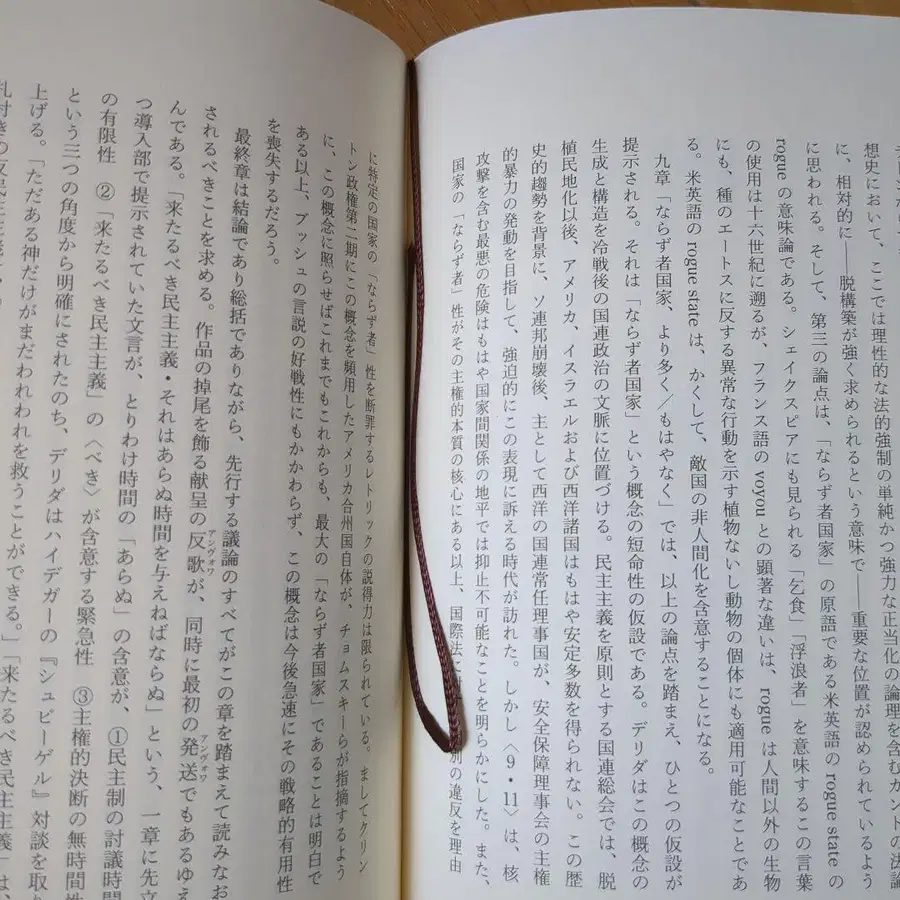 想史において、ここでは理性的な法的強制の単純かつ強力な正当化の論理を含むカントの法論
に、相対的に――脱構築が強く求められるという意味で――重要な位置が認められているよう
に思われる。そして、第三の論点は、「ならず者国家」の原語である米英語の rogue state の
rogue の意味論である。シェイクスピアにも見られる「乞食」「浮浪者」を意味するこの言葉
の使用は十六世紀に遡るが、フランス語の voyou との顕著な違いは、rogue は人間以外の生物
にも、種のエートスに反する異常な行動を示す植物ないし動物の個体にも適用可能なことであ
る。米英語の rogue state は、かくして、敵国の非人間化を含意することになる。
九章「ならず者国家、より多く／もはやなく」では、以上の論点を踏まえ、ひとつの仮説が
提示される。それは「ならず者国家」という概念の短命性の仮説である。デリダはこの概念の
生成と構造を冷戦後の国連政治の文脈に位置づける。民主主義を原則とする国連総会では、脱
植民地化以後、アメリカ、イスラエルおよび西洋諸国はもはや安定多数を得られない。この歴
史的趨勢を背景に、ソ連邦崩壊後、主として西洋の国連常任理事国が、安全保障理事会の主権
的暴力の発動を目指して、強迫的にこの表現に訴える時代が訪れた。しかし〈9・11〉は、核
攻撃を含む最悪の危険はもはや国家間関係の地平では抑止不可能なことを明らかにした。また、
国家の「ならず者」性がその主権的本質の核心にある以上、国際法に対 別の違反を理由
に特定の国家の「ならず者」性を断罪するレトリックの説得力は限られている。ましてクリン
トン政権第二期にこの概念を頻用したアメリカ合州国自体が、チョムスキーらが指摘するよう
に、この概念に照らせばこれまでもこれからも、最大の「ならず者国家」であることは明白で
ある以上、ブッシュの言説の好戦性にもかかわらず、この概念は今後急速にその戦略的有用性
を喪失するだろう。
最終章は結論であり総括でありながら、先行する議論のすべてがこの章を踏まえて読みなお
されるべきことを求める。作品の掉尾を飾る献呈の反歌アンヴォワが、同時に最初の発送アンヴォワでもあるゆえ
んである。「来たるべき民主主義・それはあらぬ時間を与えねばならぬ」という、一章に先立
つ導入部で提示されていた文言が、とりわけ時間の「あらぬ」の含意が、①民主制の討議時間
の有限性 ②「来たるべき民主主義」の〈べき〉が含意する緊急性 ③主権的決断の無時間性
という三つの角度から明確にされたのち、デリダはハイデガーの『シュピーゲル』対談を取り
上げる。「ただある神だけがまだわれわれを救うことができる。」「来たるべき民主主義」は、